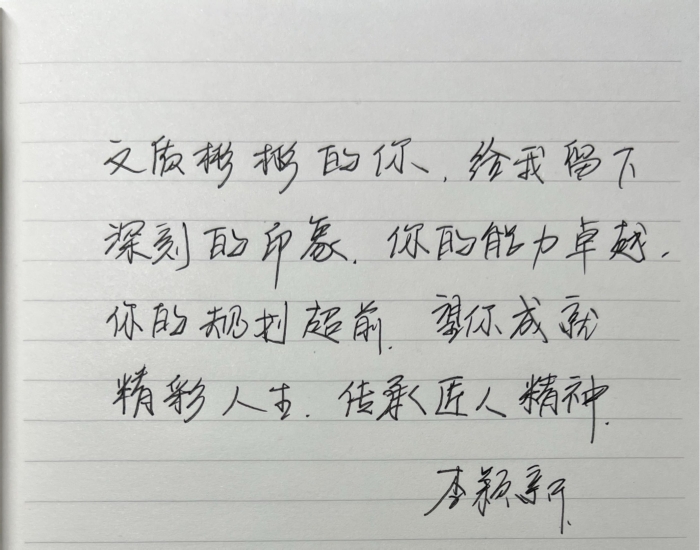 文质彬彬的你、给我留下
深刻的印象. 你的能力卓越.
你的规划超前. 望你成就
精彩人生. 传承匠人精神.
李颖新.